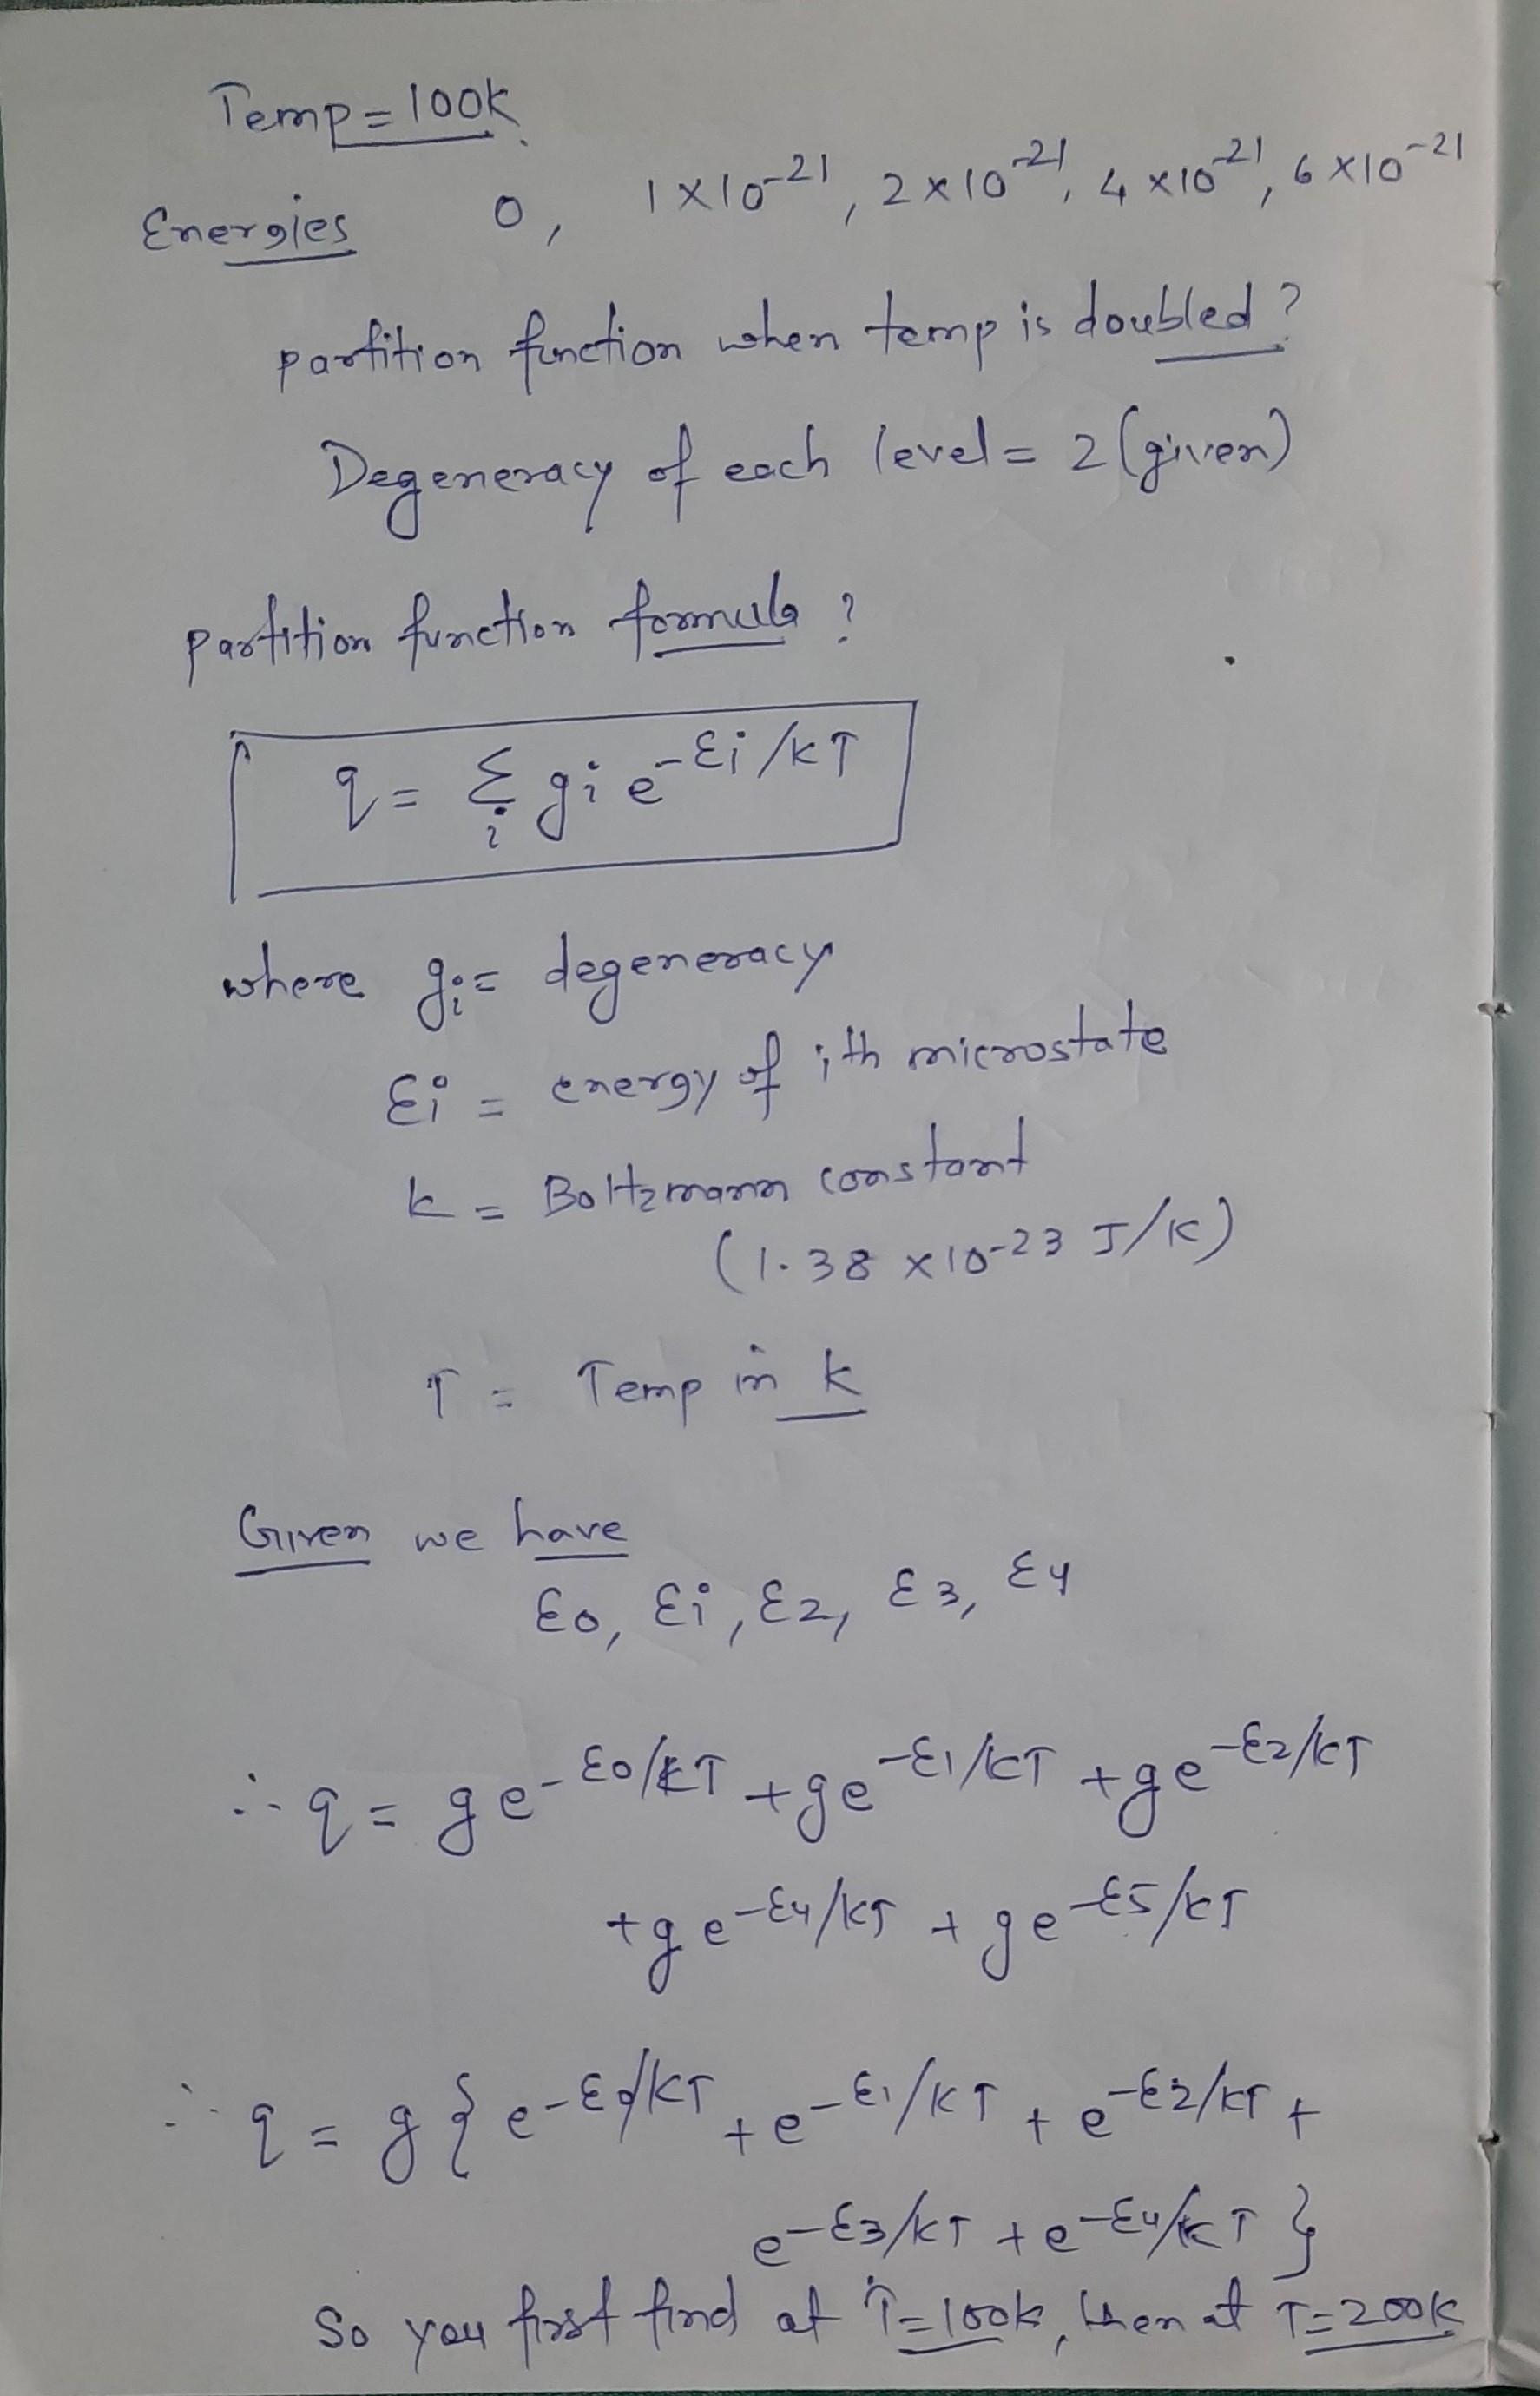 Temp = 100K
Energies 0, 1 × 10⁻²¹, 2 × 10⁻²¹, 4 × 10⁻²¹, 6 × 10⁻²¹
partition function when temp is doubled?
Degeneracy of each level = 2 (given)
partition function formula ?
q = Σᵢ gi e^-εi/kT
where gi = degeneracy
εi = energy of ith microstate
k = Boltzmann constant
(1.38 × 10⁻²³ J/K)
T = Temp in k
Given we have
ε0, εi, ε2, ε3, ε4
∴ q = ge^-ε0/kT + ge^-ε1/kT + ge^-ε2/kT
+ ge^-ε4/kT + ge^-ε5/kT
∴ q = g { e^-ε0/kT + e^-ε1/kT + e^-ε2/kT +
e^-ε3/kT + e^-ε4/kT }
So you first find at T=100k, then at T=200k